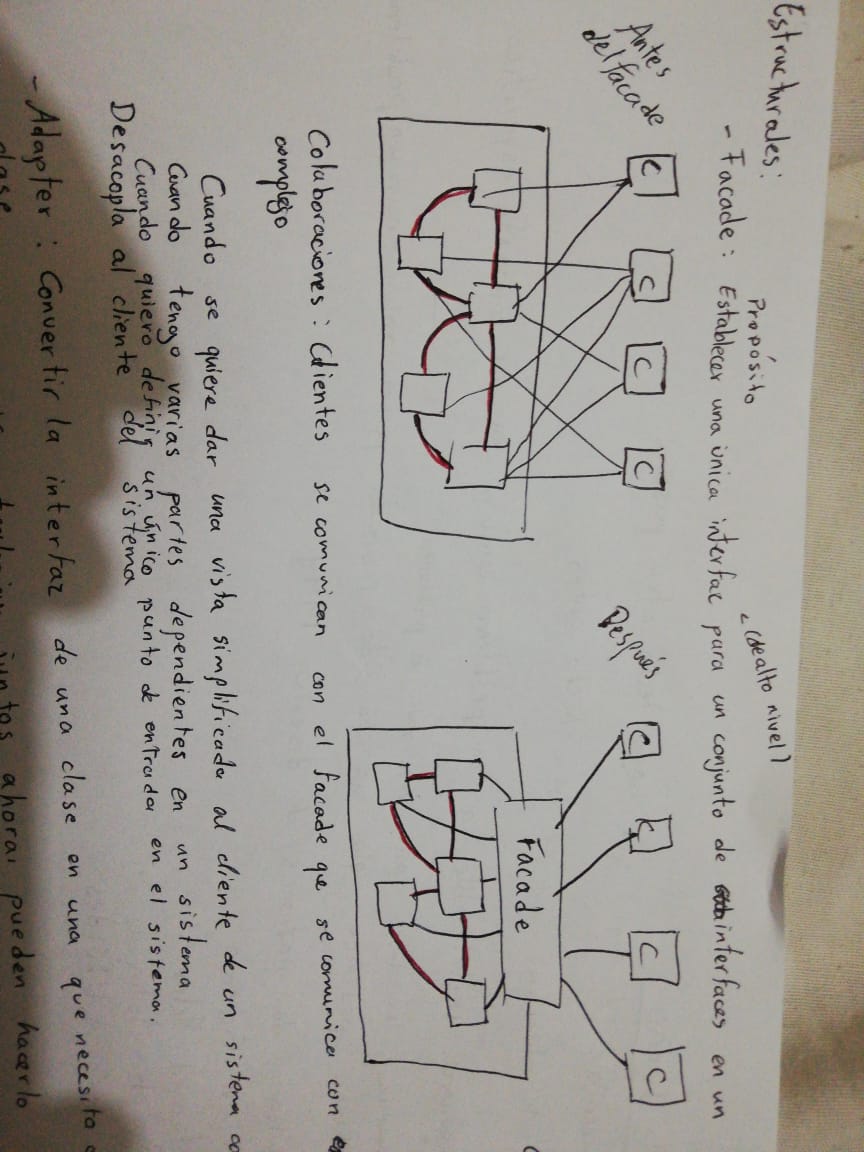 Estructurales:
Propósito
(de alto nivel)
- Facade: Establecer una única interfac para un conjunto de interfaces en un
Antes
del facade
Después
C
C
C
C
C
C
C
C
Facade
Colaboraciones: Clientes se comunican con el facade que se comunica con
complejo
Cuando se quiere dar una vista simplificada al cliente de un sistema
Cuando tengo varias partes dependientes en un sistema
Cuando quiero definir un único punto de entrada en el sistema.
Desacopla al cliente del sistema
- Adapter: Convertir la interfaz de una clase en una que necesita
clase juntos ahora pueden hacerlo